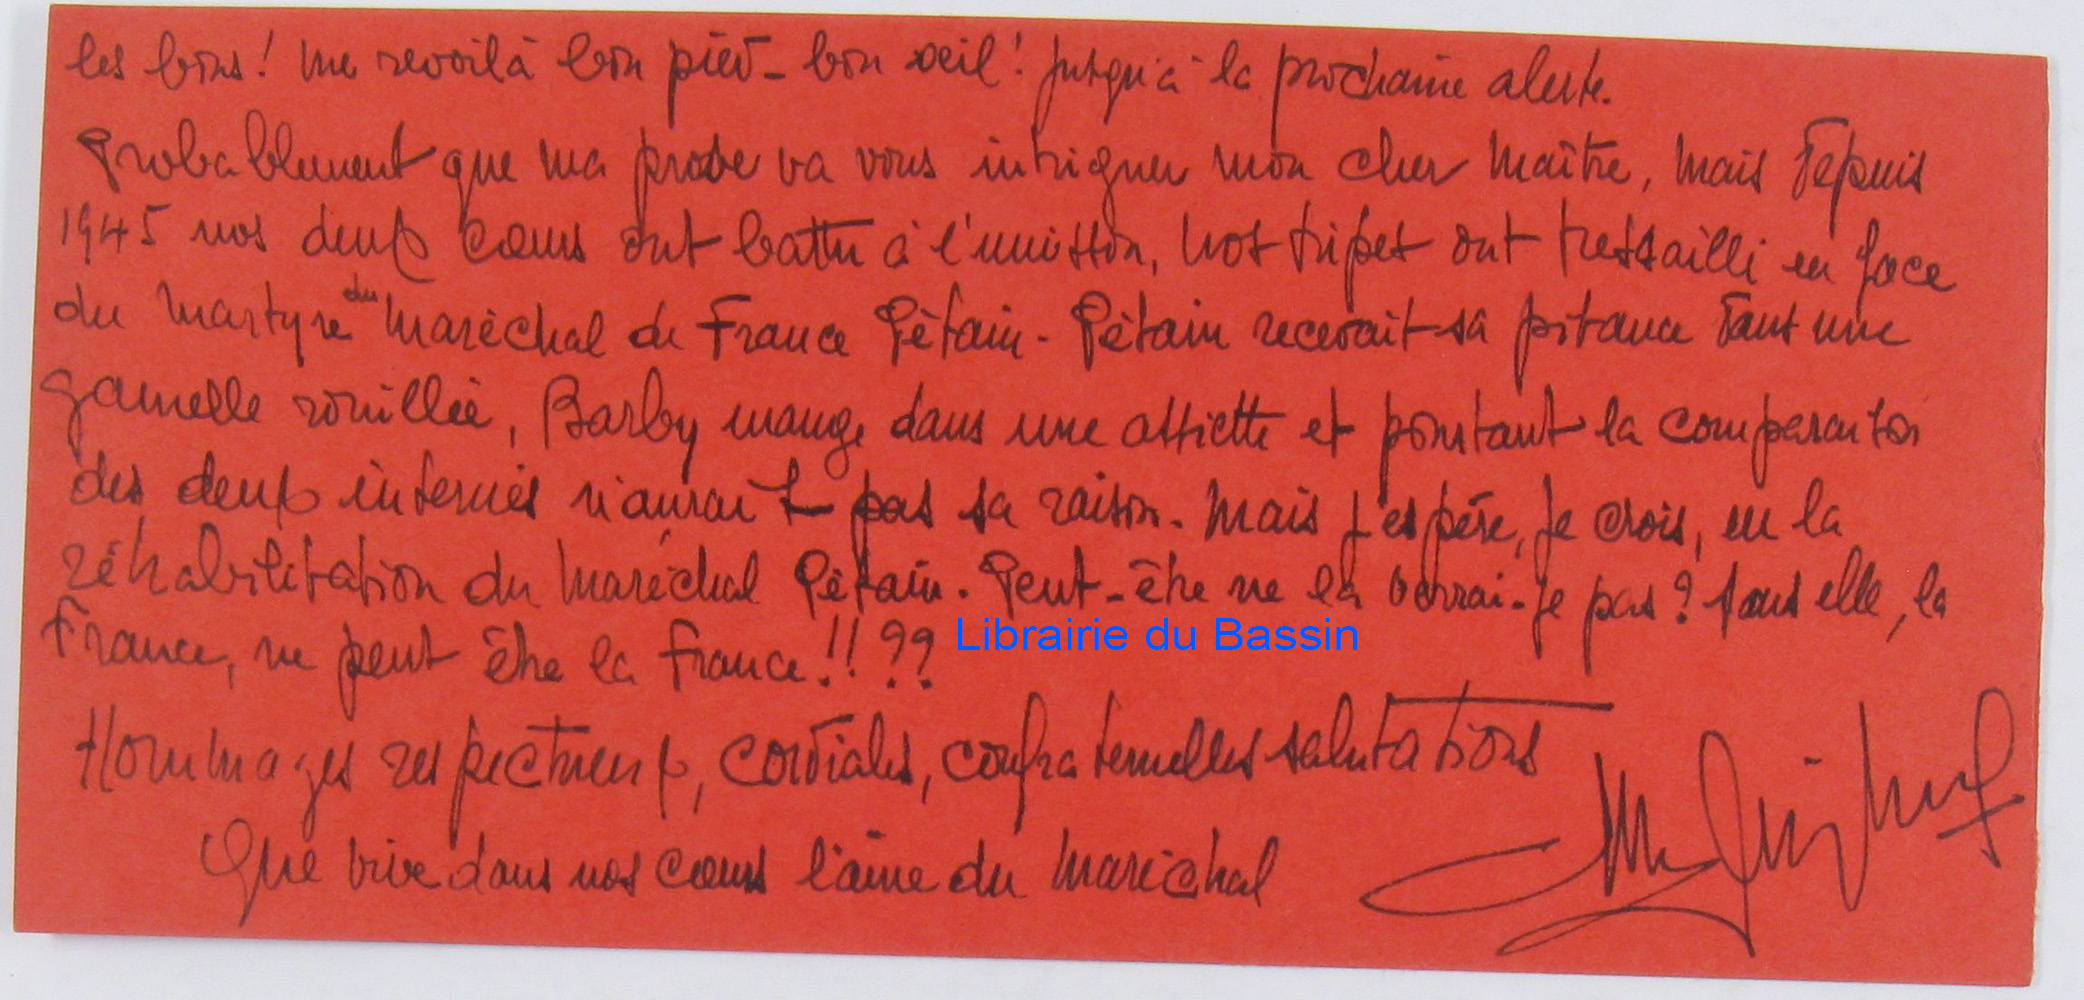 les bons ! me revoilà bon pied - bon œil ! jusqu'à la prochaine alerte.
Probablement que ma prose va vous intriguer mon cher Maître, mais depuis
1945 nos deux cœurs ont battu à l'unisson, nos tripes ont tressailli en face
du martyre du Maréchal de France Pétain - Pétain recevait sa pitance dans une
gamelle rouillée, Barby mange dans une assiette et pourtant la comparaison
des deux internés n'aurait pas sa raison. Mais j'espère, je crois, en la
réhabilitation du Maréchal Pétain. Peut-être ne la verrai-je pas ? sans elle, la
France, ne peut être la France !! ??
Librairie du Bassin
Hommages respectueux, cordiales, confraternelles salutations
Que vive dans nos cœurs l'âme du Maréchal